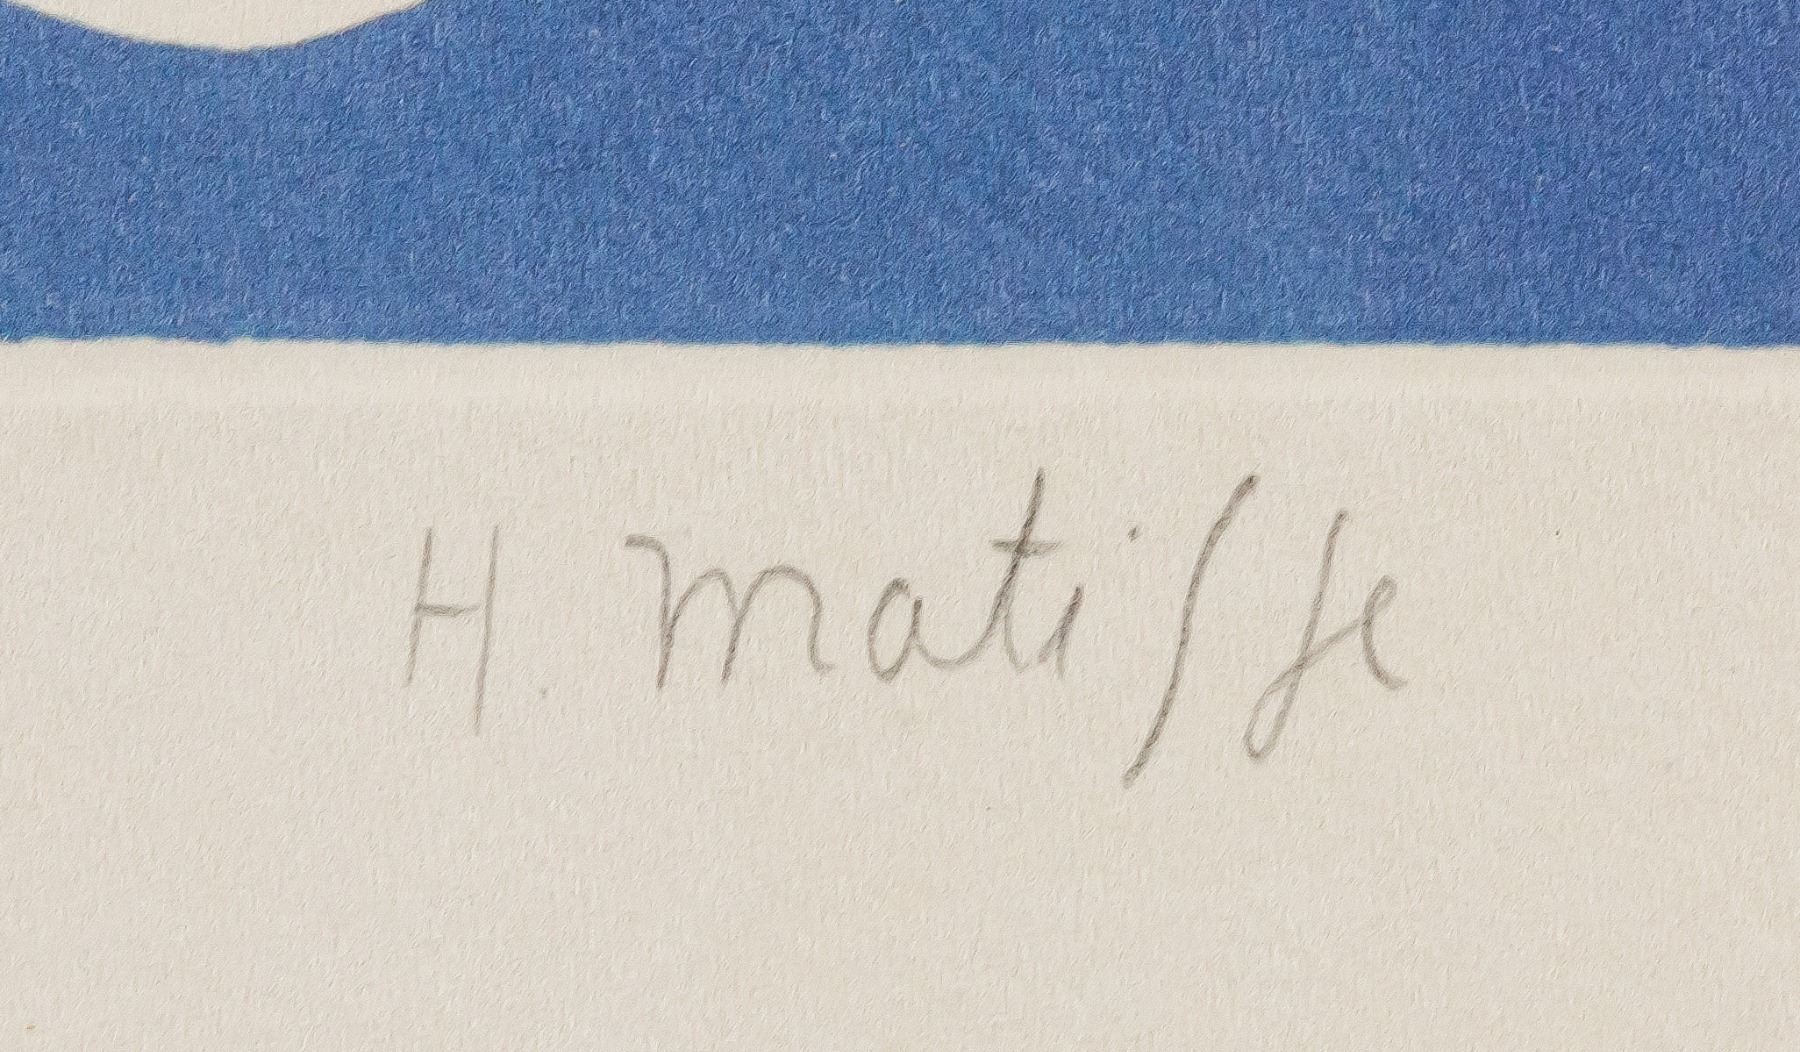 H. Matisse